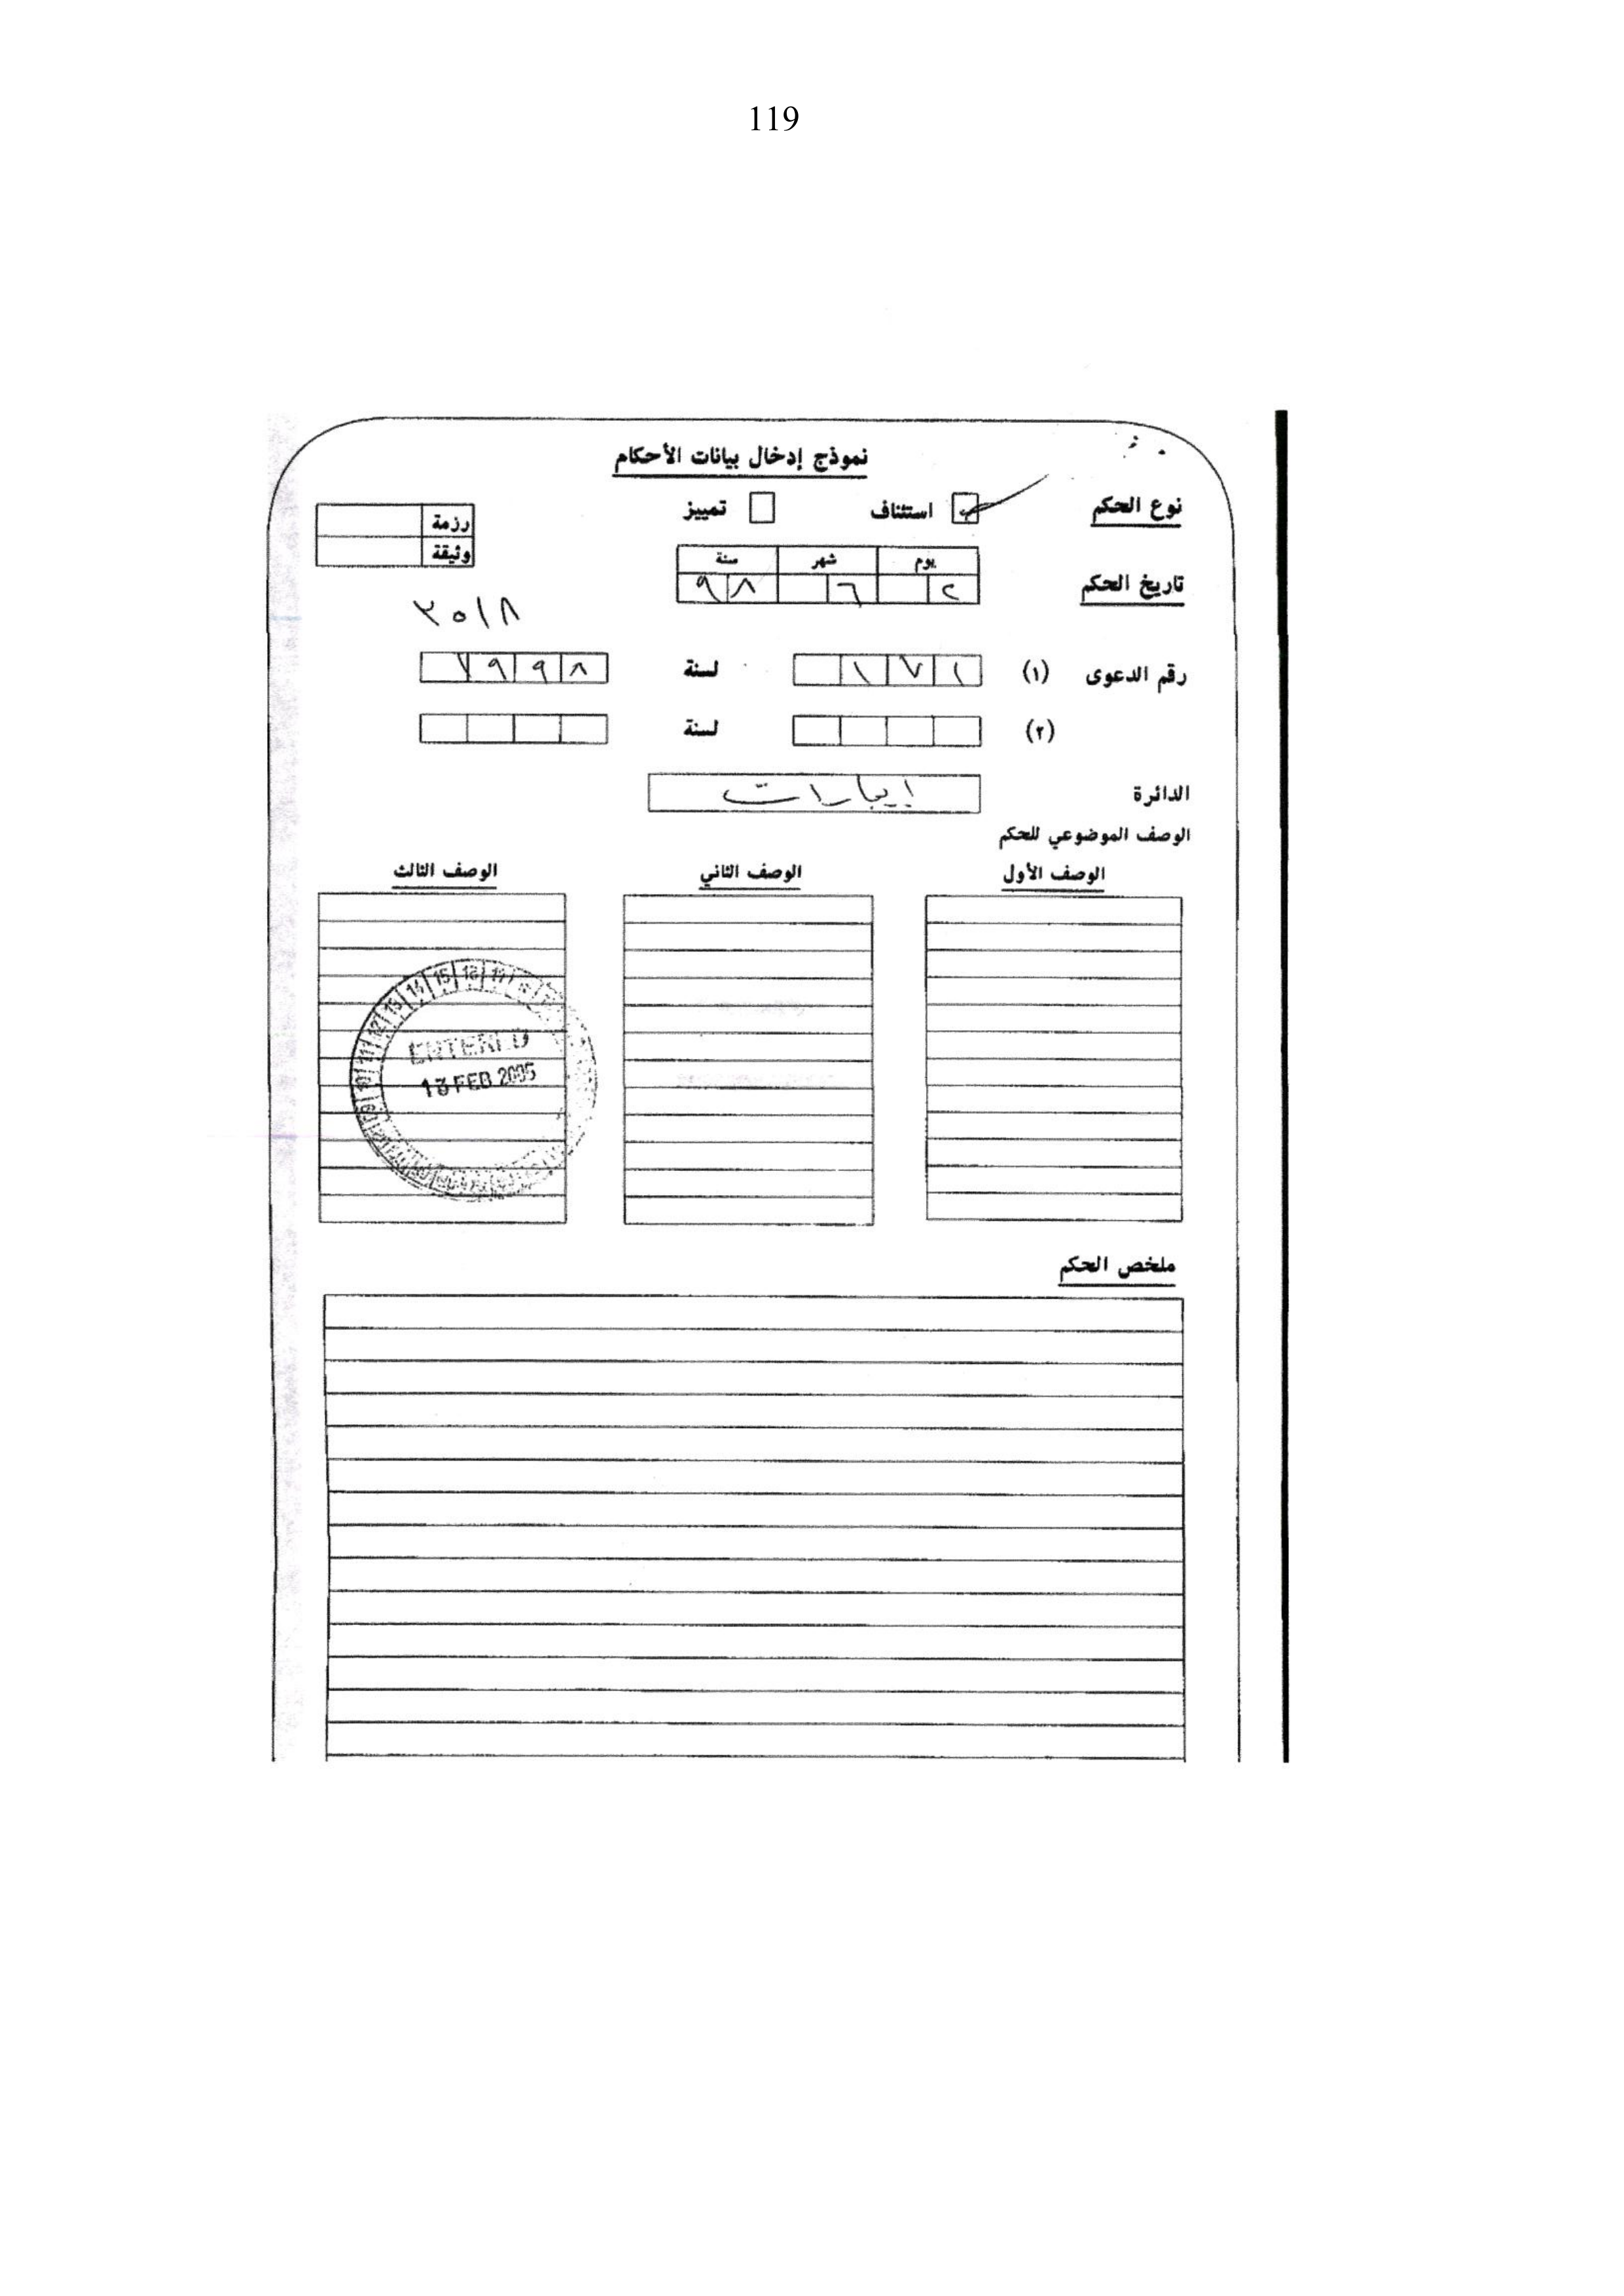 119
نموذج إدخال بيانات الأحكام
نوع الحكم استئناف تمييز
رزمة
وثيقة
يوم شهر سنة
تاريخ الحكم ٢ ٦ ٩٨
٣٥١٨
رقم الدعوى (١) ١٧١ لسنة ١٩٩٨
(٢) لسنة
الدائرة إيجارات
الوصف الموضوعي للحكم
الوصف الأول الوصف الثاني الوصف الثالث
ENTERED
13 FEB 2005
ملخص الحكم